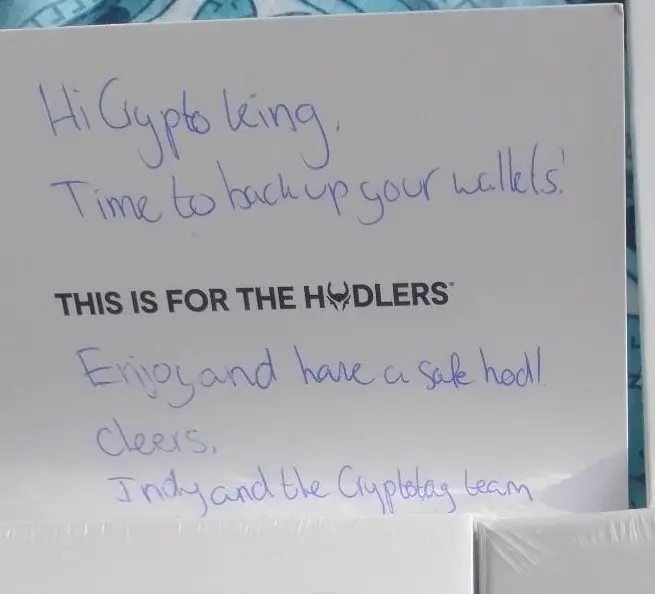 Hi Crypto king,
Time to backup your wallets!
THIS IS FOR THE HODLERS
Enjoy and have a safe hodl!
Cleers,
Indy and the Cryptotag team